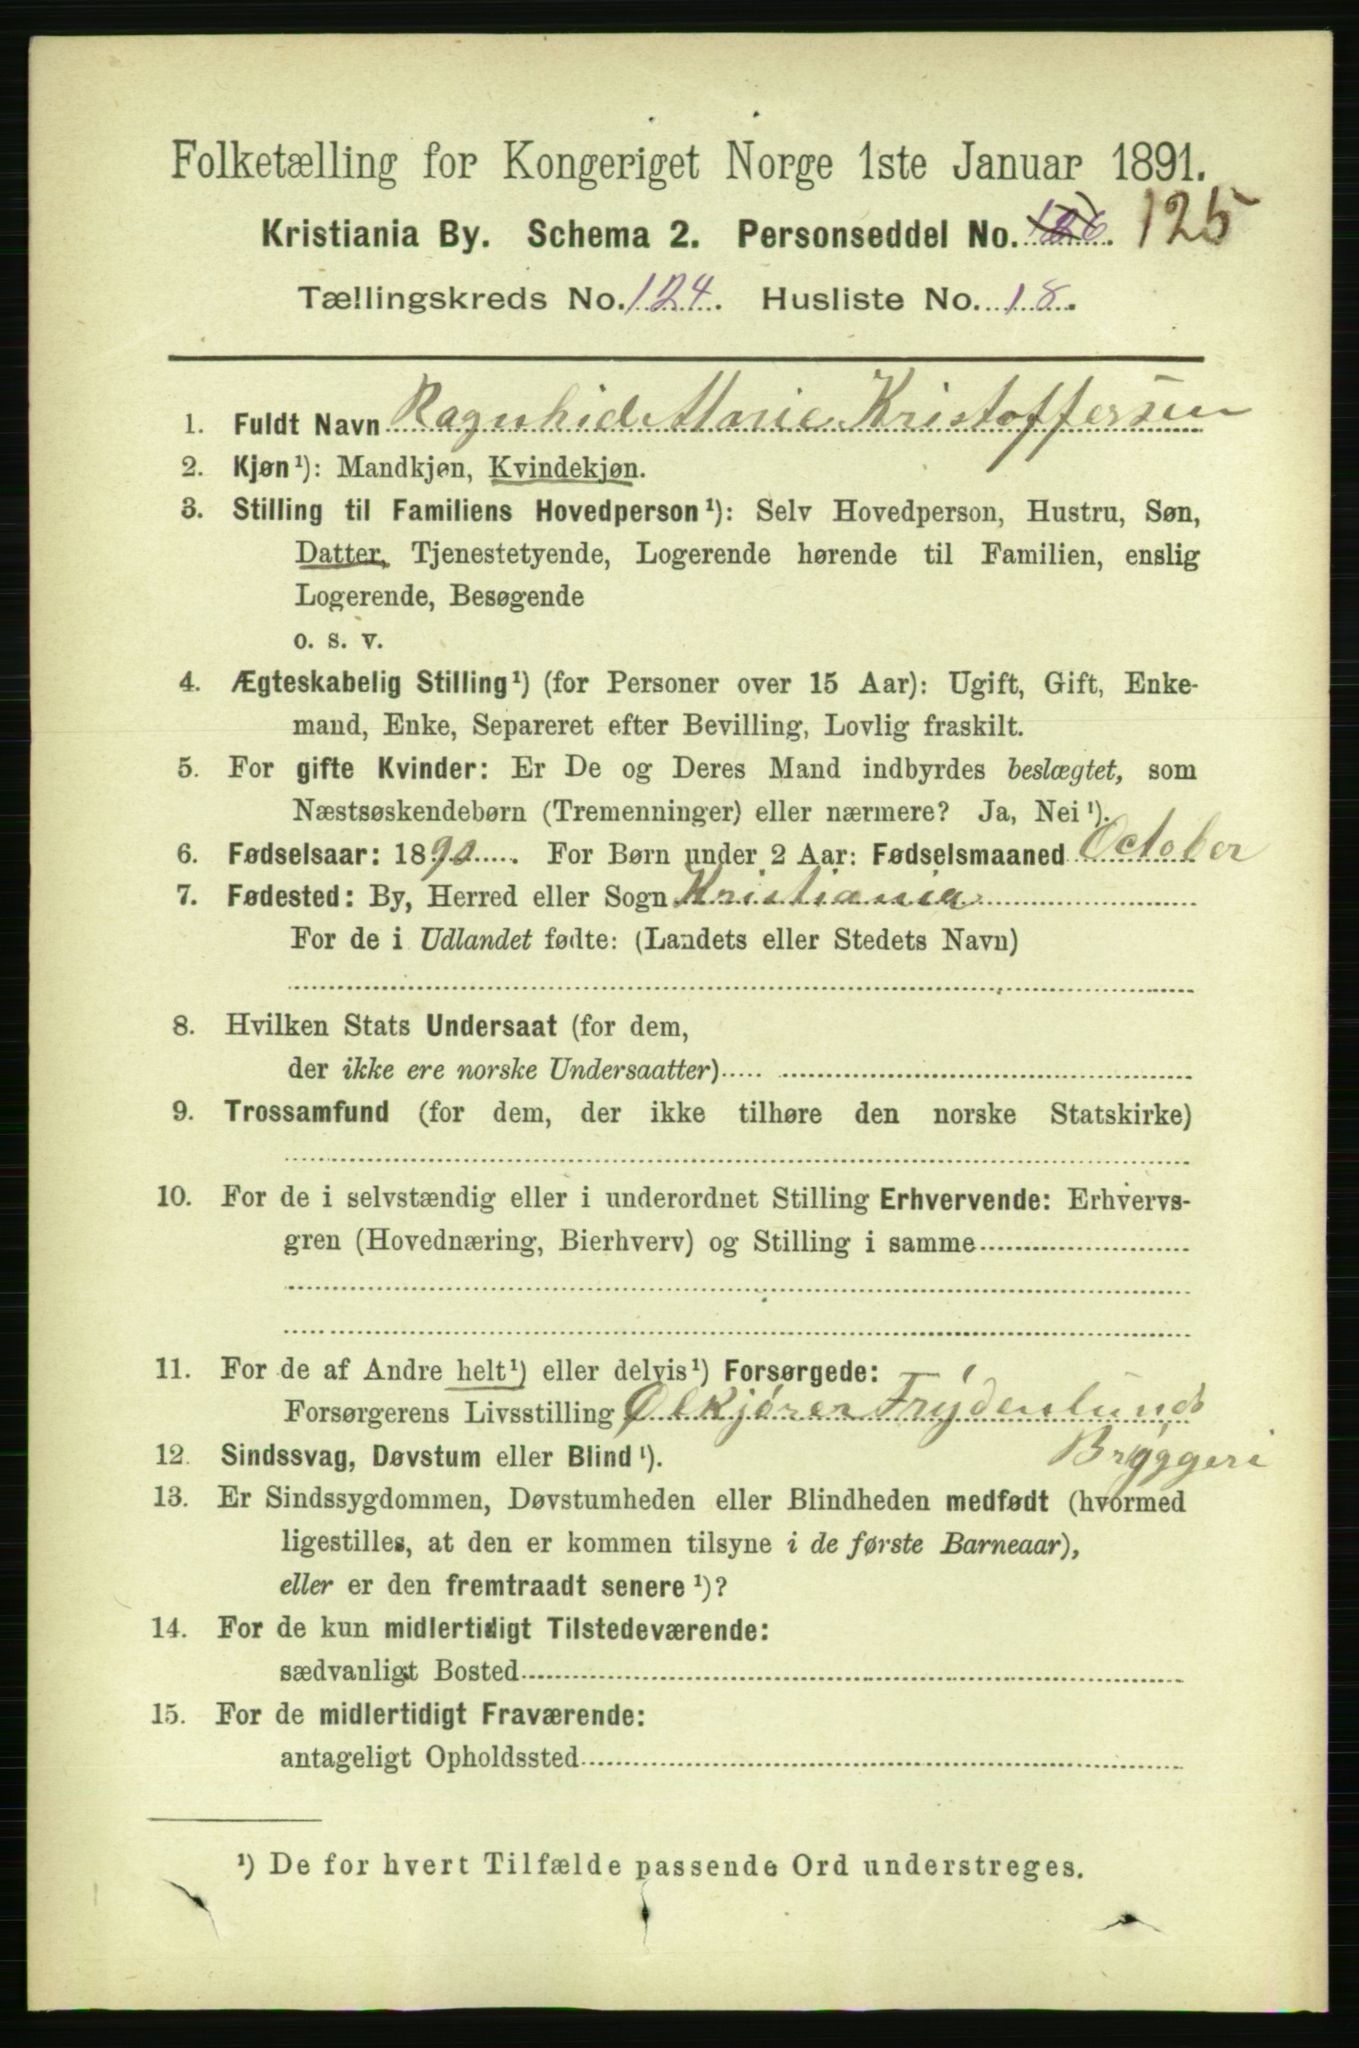 Folketælling for Kongeriget Norge 1ste Januar 1891.
Kristiania By. Schema 2. Personseddel No. 126. 125
Tællingskreds No. 124. Husliste No. 18.
1. Fuldt Navn Ragnhid Marie Kristoffersen
2. Kjøn ¹): Mandkjøn, Kvindekjøn.
3. Stilling til Familiens Hovedperson ¹): Selv Hovedperson, Hustru, Søn,
Datter, Tjenestetyende, Logerende hørende til Familien, enslig
Logerende, Besøgende
o. s. v.
4. Ægteskabelig Stilling ¹) (for Personer over 15 Aar): Ugift, Gift, Enke-
mand, Enke, Separeret efter Bevilling, Lovlig fraskilt.
5. For gifte Kvinder: Er De og Deres Mand indbyrdes beslægtet, som
Næstsøskendebørn (Tremenninger) eller nærmere? Ja, Nei ¹).
6. Fødselsaar: 1890. For Børn under 2 Aar: Fødselsmaaned October
7. Fødested: By, Herred eller Sogn Kristiania
For de i Udlandet fødte: (Landets eller Stedets Navn)
8. Hvilken Stats Undersaat (for dem,
der ikke ere norske Undersaatter)
9. Trossamfund (for dem, der ikke tilhøre den norske Statskirke)
10. For de i selvstændig eller i underordnet Stilling Erhvervende: Erhvervs-
gren (Hovednæring, Bierhverv) og Stilling i samme
11. For de af Andre helt ¹) eller delvis ¹) Forsørgede:
Forsørgerens Livsstilling Ølkjører Frydenlunds
Bryggeri
12. Sindssvag, Døvstum eller Blind ¹).
13. Er Sindssygdommen, Døvstumheden eller Blindheden medfødt (hvormed
ligestilles, at den er kommen tilsyne i de første Barneaar),
eller er den fremtraadt senere ¹)?
14. For de kun midlertidigt Tilstedeværende:
sædvanligt Bosted
15. For de midlertidigt Fraværende:
antageligt Opholdssted
¹) De for hvert Tilfælde passende Ord understreges.